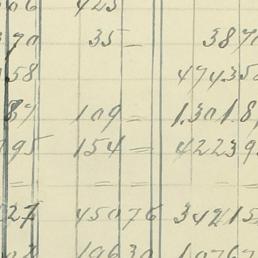 06 425
370 35 – 3870
158 474350
87 109 – 1.301.8
795 154 = 42239
= = = =
227 45076 34215
19630 10767